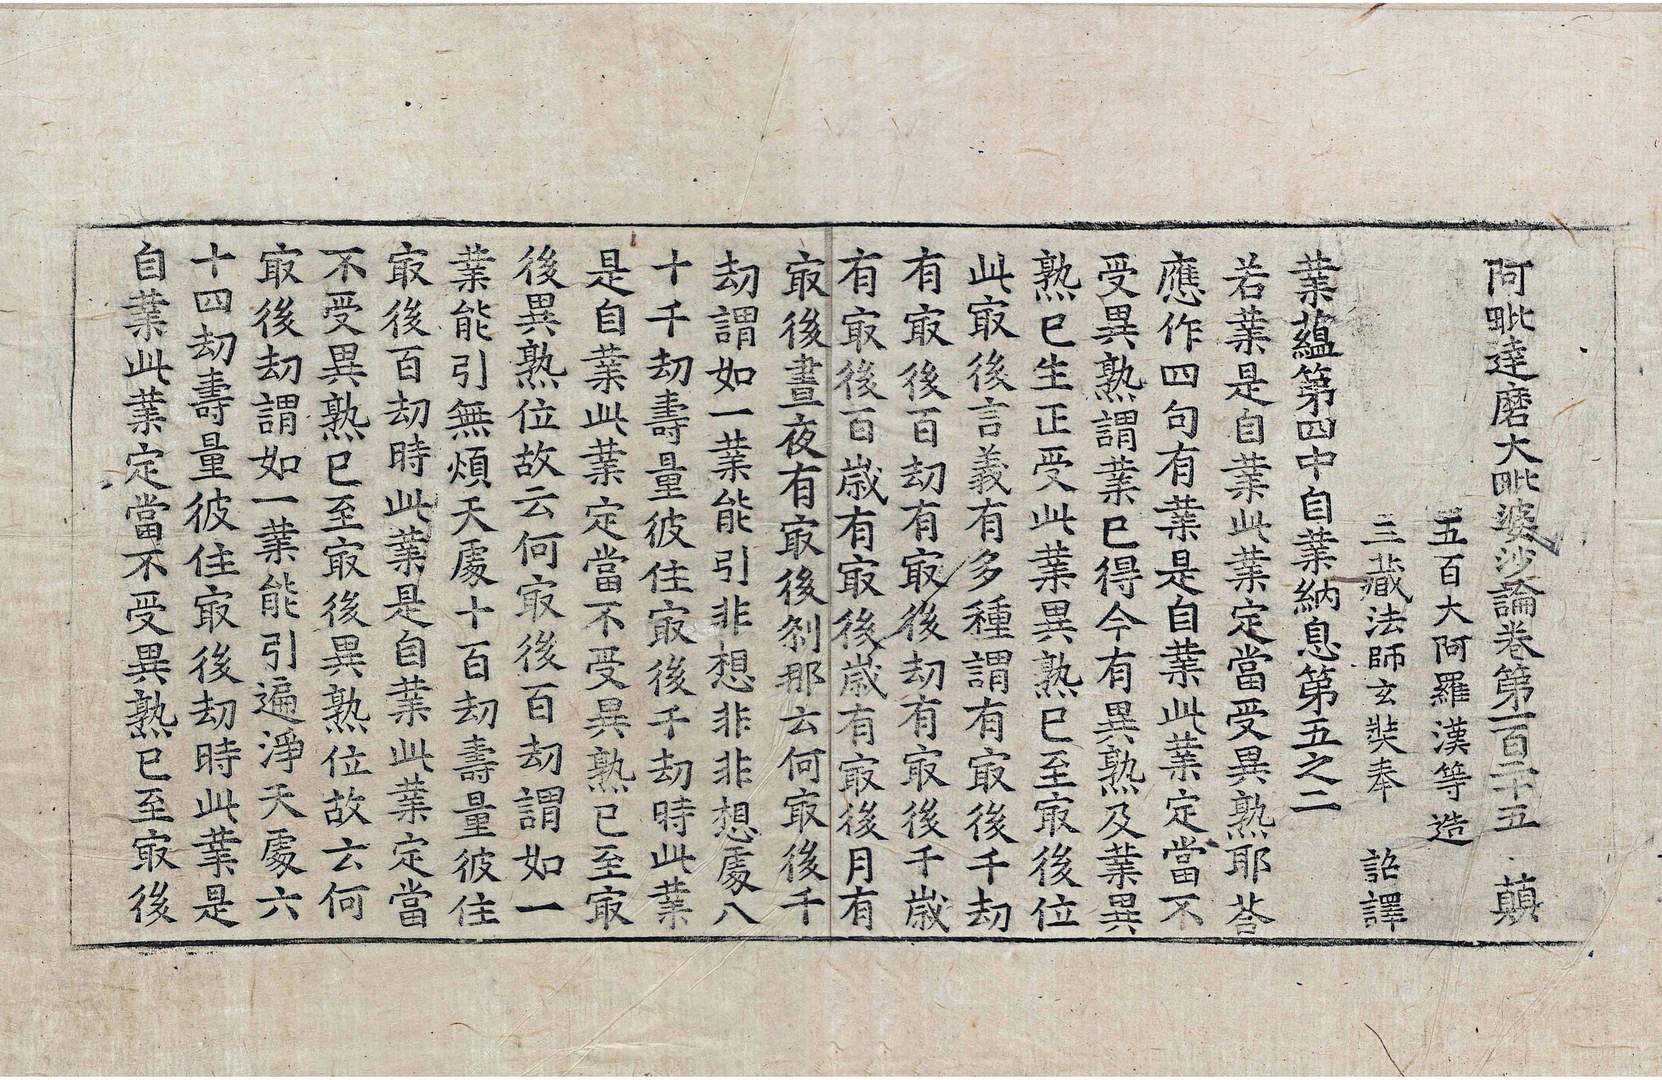 阿毗達磨大毗婆沙論卷第一百二十五　顛
五百大阿羅漢等造
三藏法師玄奘奉　詔譯
業蘊第四中自業納息第五之二
若業是自業此業定當受異熟耶荅
應作四句有業是自業此業定當不
受異熟謂業已得今有異熟及業異
熟已生正受此業異熟已至㝡後位
此㝡後言義有多種謂有㝡後千劫
有㝡後百劫有㝡後劫有㝡後千歲
有㝡後百歲有㝡後歲有㝡後月有
㝡後晝夜有㝡後剎那云何㝡後千
劫謂如一業能引非想非非想處八
十千劫壽量彼住㝡後千劫時此業
是自業此業定當不受異熟已至㝡
後異熟位故云何㝡後百劫謂如一
業能引無煩天處十百劫壽量彼住
㝡後百劫時此業是自業此業定當
不受異熟已至㝡後異熟位故云何
㝡後劫謂如一業能引遍淨天處六
十四劫壽量彼住㝡後劫時此業是
自業此業定當不受異熟已至㝡後